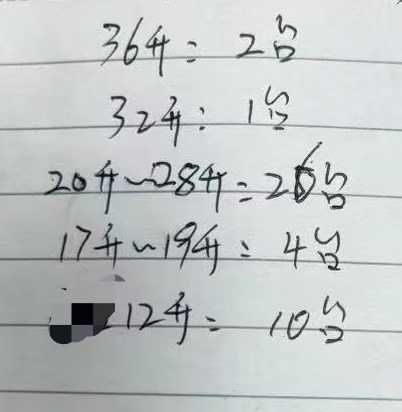 36升: 2台
32升: 1台
20升~28升: 26台
17升~19升: 4台
12升: 10台